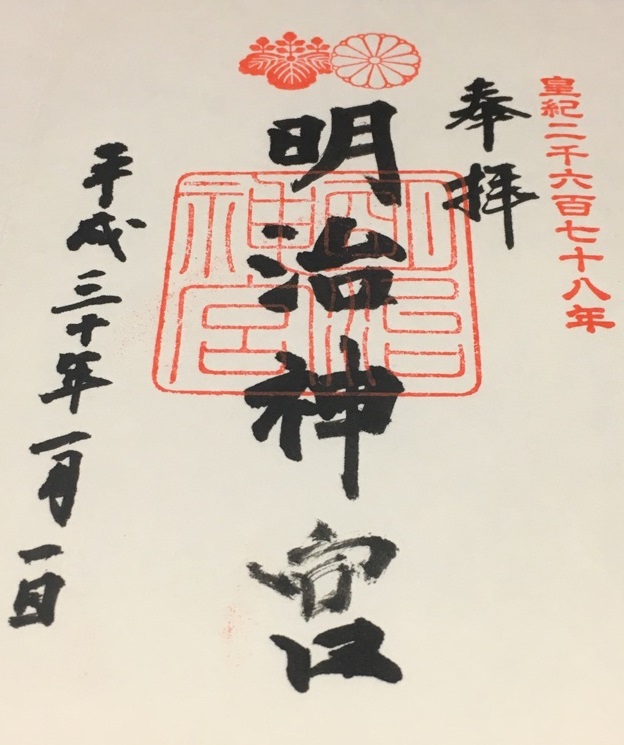 皇紀二千六百七十八年
奉拝
明治神宮
明治神宮
平成三十年一月一日